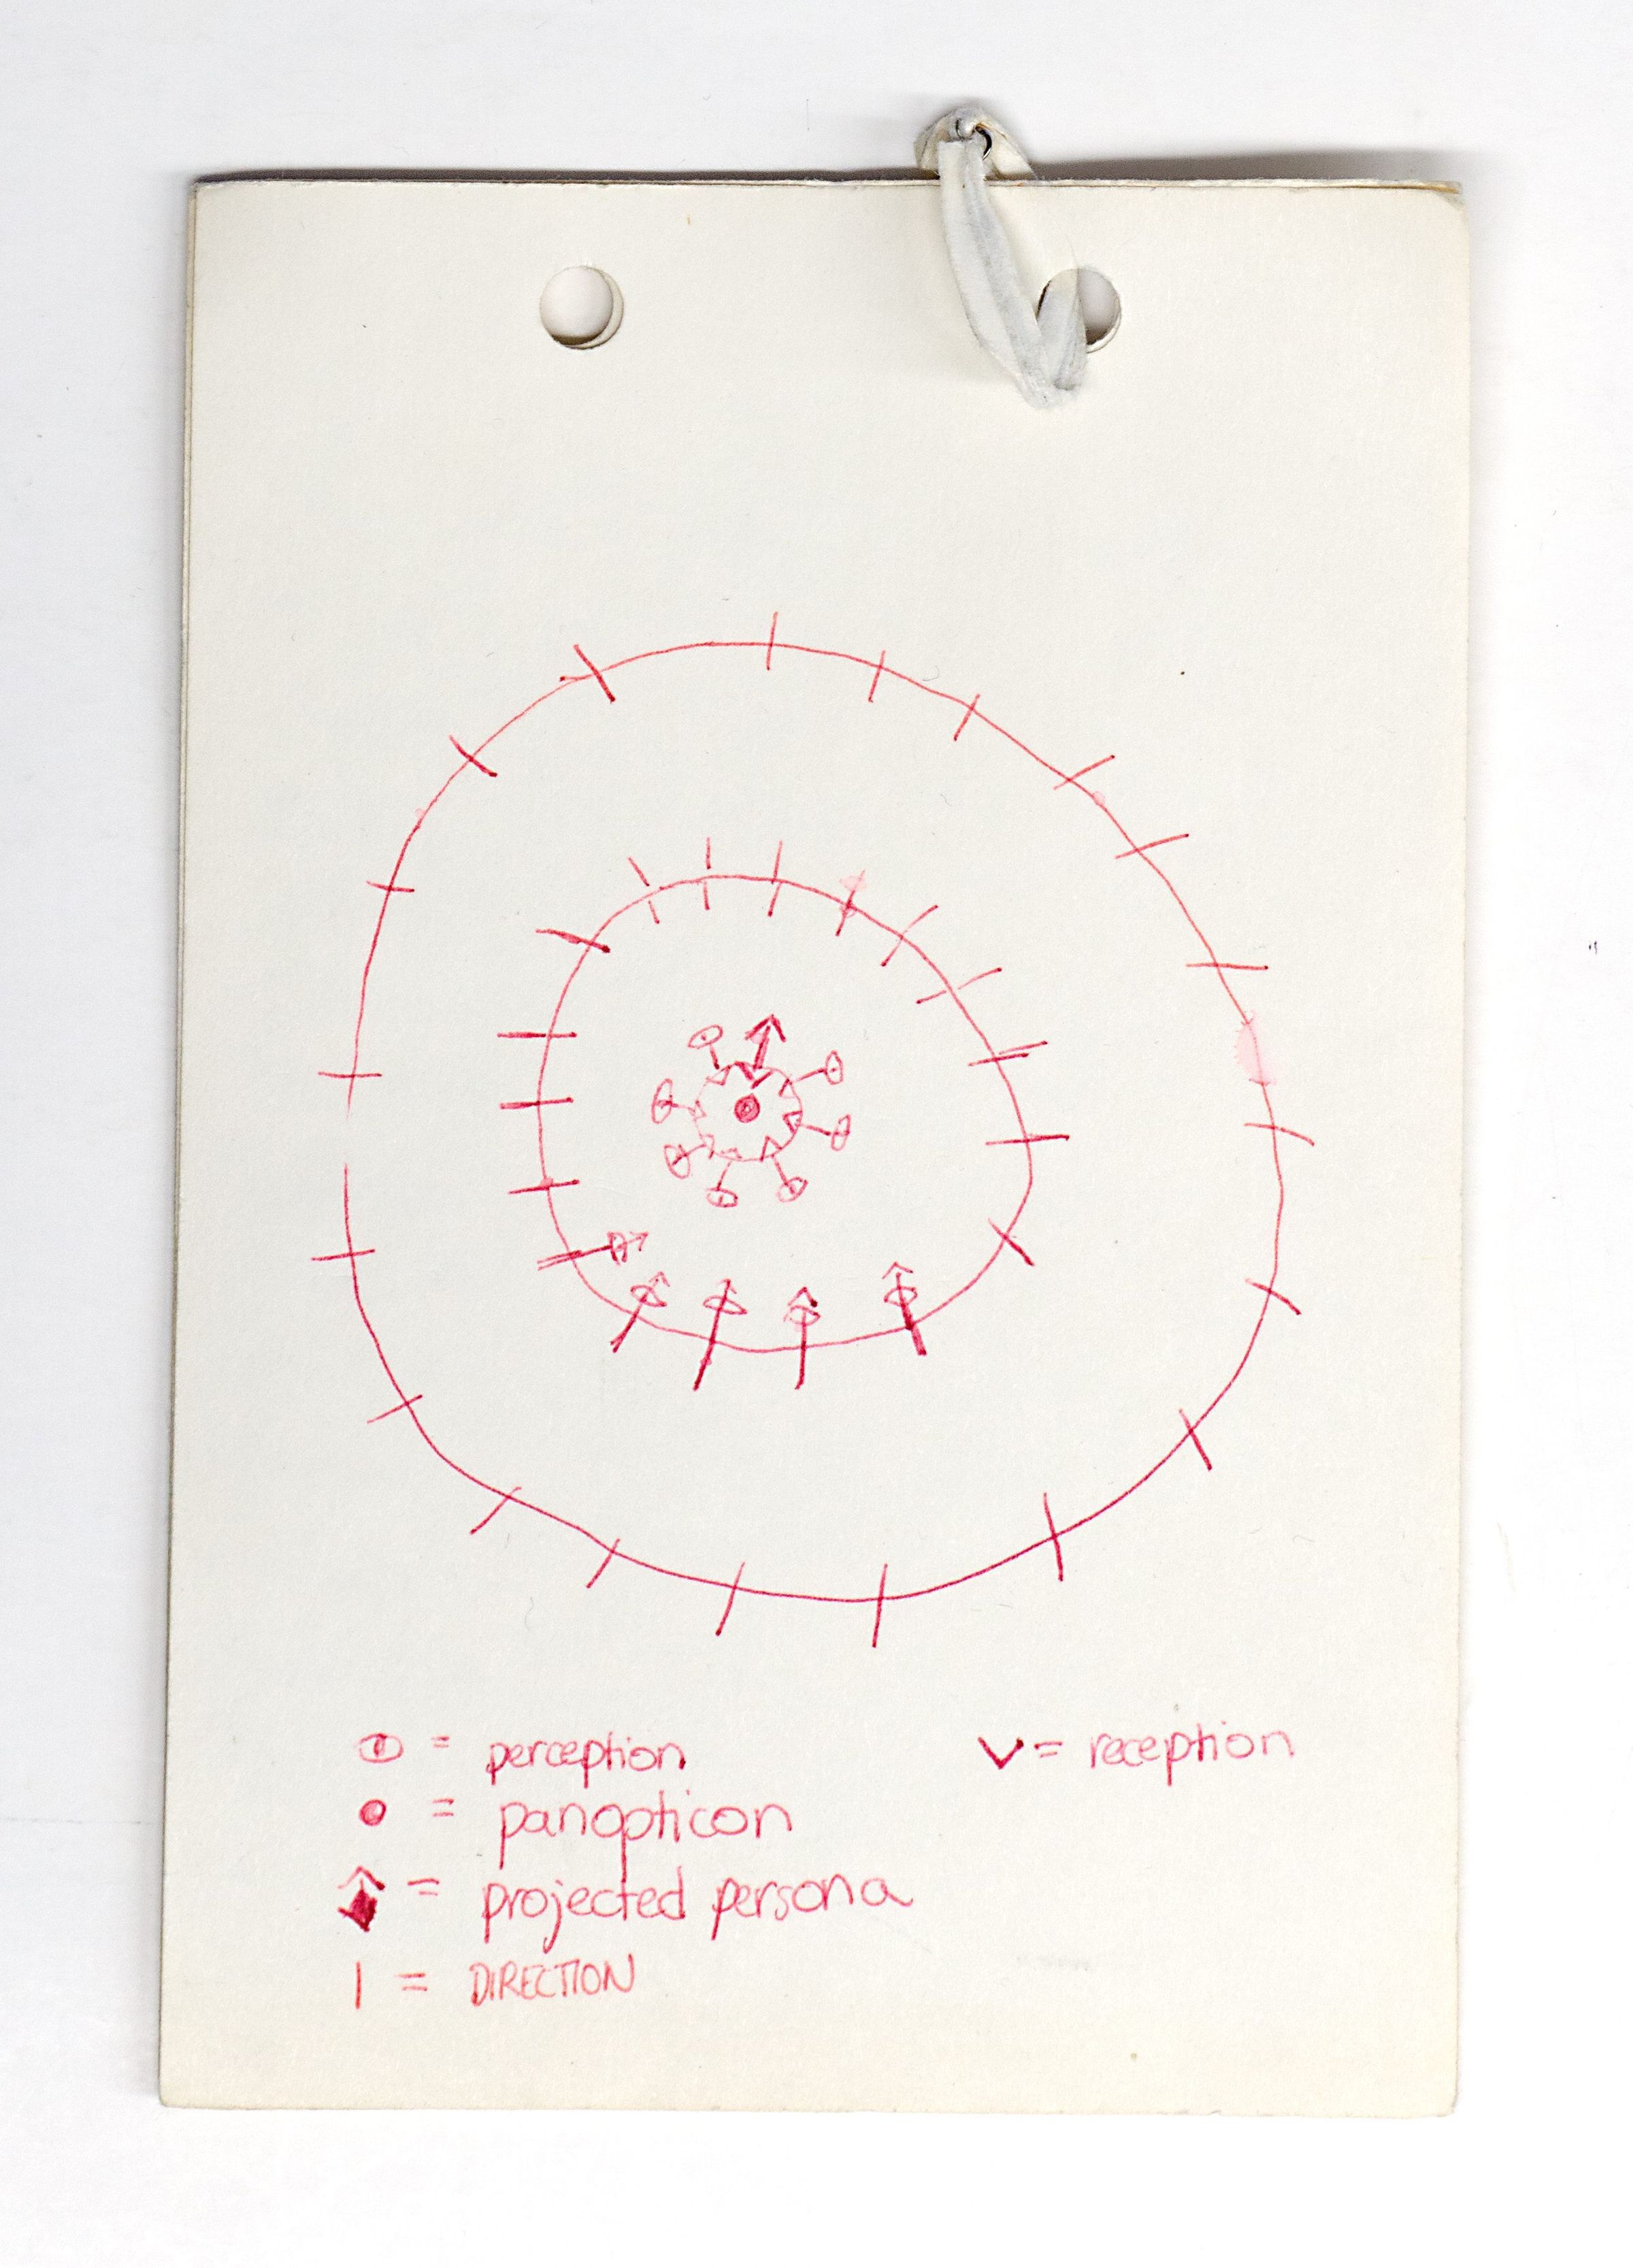 = perception
V = reception
= panopticon
= projected persona
| = DIRECTION